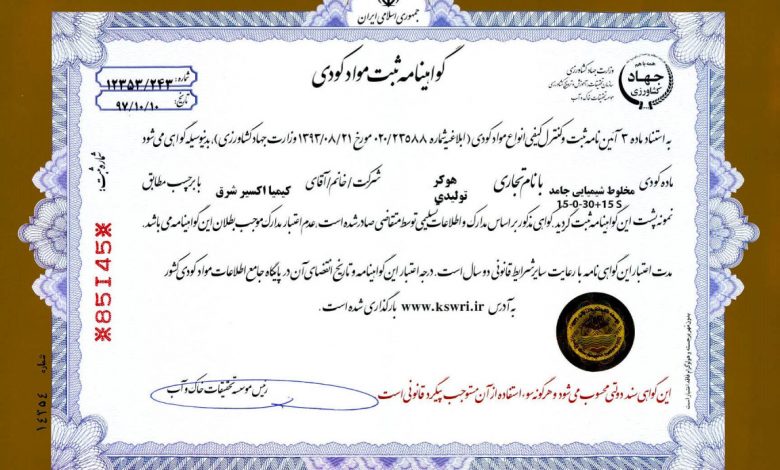 جمهوری اسلامی ایران
گواهینامه ثبت مواد کودی
شماره: ۱۲۳۵۳/۲۴۳
تاریخ: ۹۷/۱۰/۱۰
همه با هم
جهاد
کشاورزی
وزارت جهاد کشاورزی
سازمان تحقیقات، آموزش و ترویج کشاورزی
موسسه تحقیقات خاک و آب
به استناد ماده ۳ آئین نامه ثبت و کنترل کیفی انواع مواد کودی (ابلاغیه شماره ۰۲۰/۲۳۵۸۸ مورخ ۱۳۹۳/۰۸/۲۱ وزارت جهاد کشاورزی)، بدینوسیله گواهی می‌شود
ماده کودی مخلوط شیمیایی جامد با نام تجاری هوکر شرکت/خانم/آقای کیمیا اکسیر شرق با برچسب مطابق
15-0-30+15 S تولیدی
نمونه پشت این گواهینامه ثبت گردید. گواهی مذکور بر اساس مدارک و اطلاعات تسلیمی توسط متقاضی صادر شده است، عدم اعتبار مدارک موجب بطلان این گواهینامه می‌باشد.
مدت اعتبار این گواهی نامه با رعایت سایر شرایط قانونی دو سال است. درجه اعتبار این گواهینامه و تاریخ انقضای آن در پایگاه جامع اطلاعات مواد کودی کشور
به آدرس www.kswri.ir بارگذاری شده است.
رئیس موسسه تحقیقات خاک و آب
این گواهی سند دولتی محسوب می‌شود و هرگونه سوء استفاده از آن مستوجب پیگرد قانونی است
شماره ثبت:
*85145*
شماره
۱۴۲۵۴
بدون مهر برجسته و هولوگرام فاقد اعتبار است